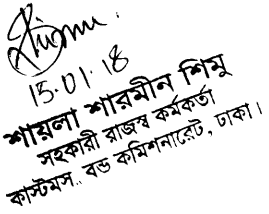 15.01.18
শায়লা শারমীন শিমু
সহকারী রাজস্ব কর্মকর্তা
কাস্টমস্, বন্ড কমিশনারেট, ঢাকা।